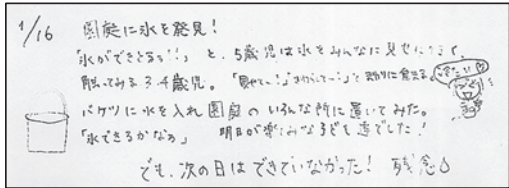 1/16 園庭に氷を発見！
「氷ができてるよ！！」と、5歳児は氷をみんなに見せにきて、
触ってみる3.4歳児。「見せて～！」「さわらせて～！」と
つめたい
バケツに水を入れ園庭のいろんな所に置いてみた。
「氷できるかなぁ」 明日が楽しみな子ども達でした！
でも、次の日はできていなかった！ 残念